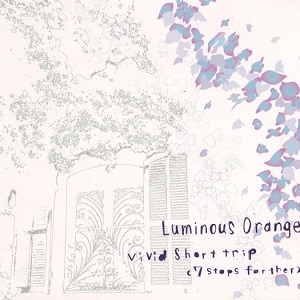 Luminous Orange
Vivid Short trip
<7 stops farther>